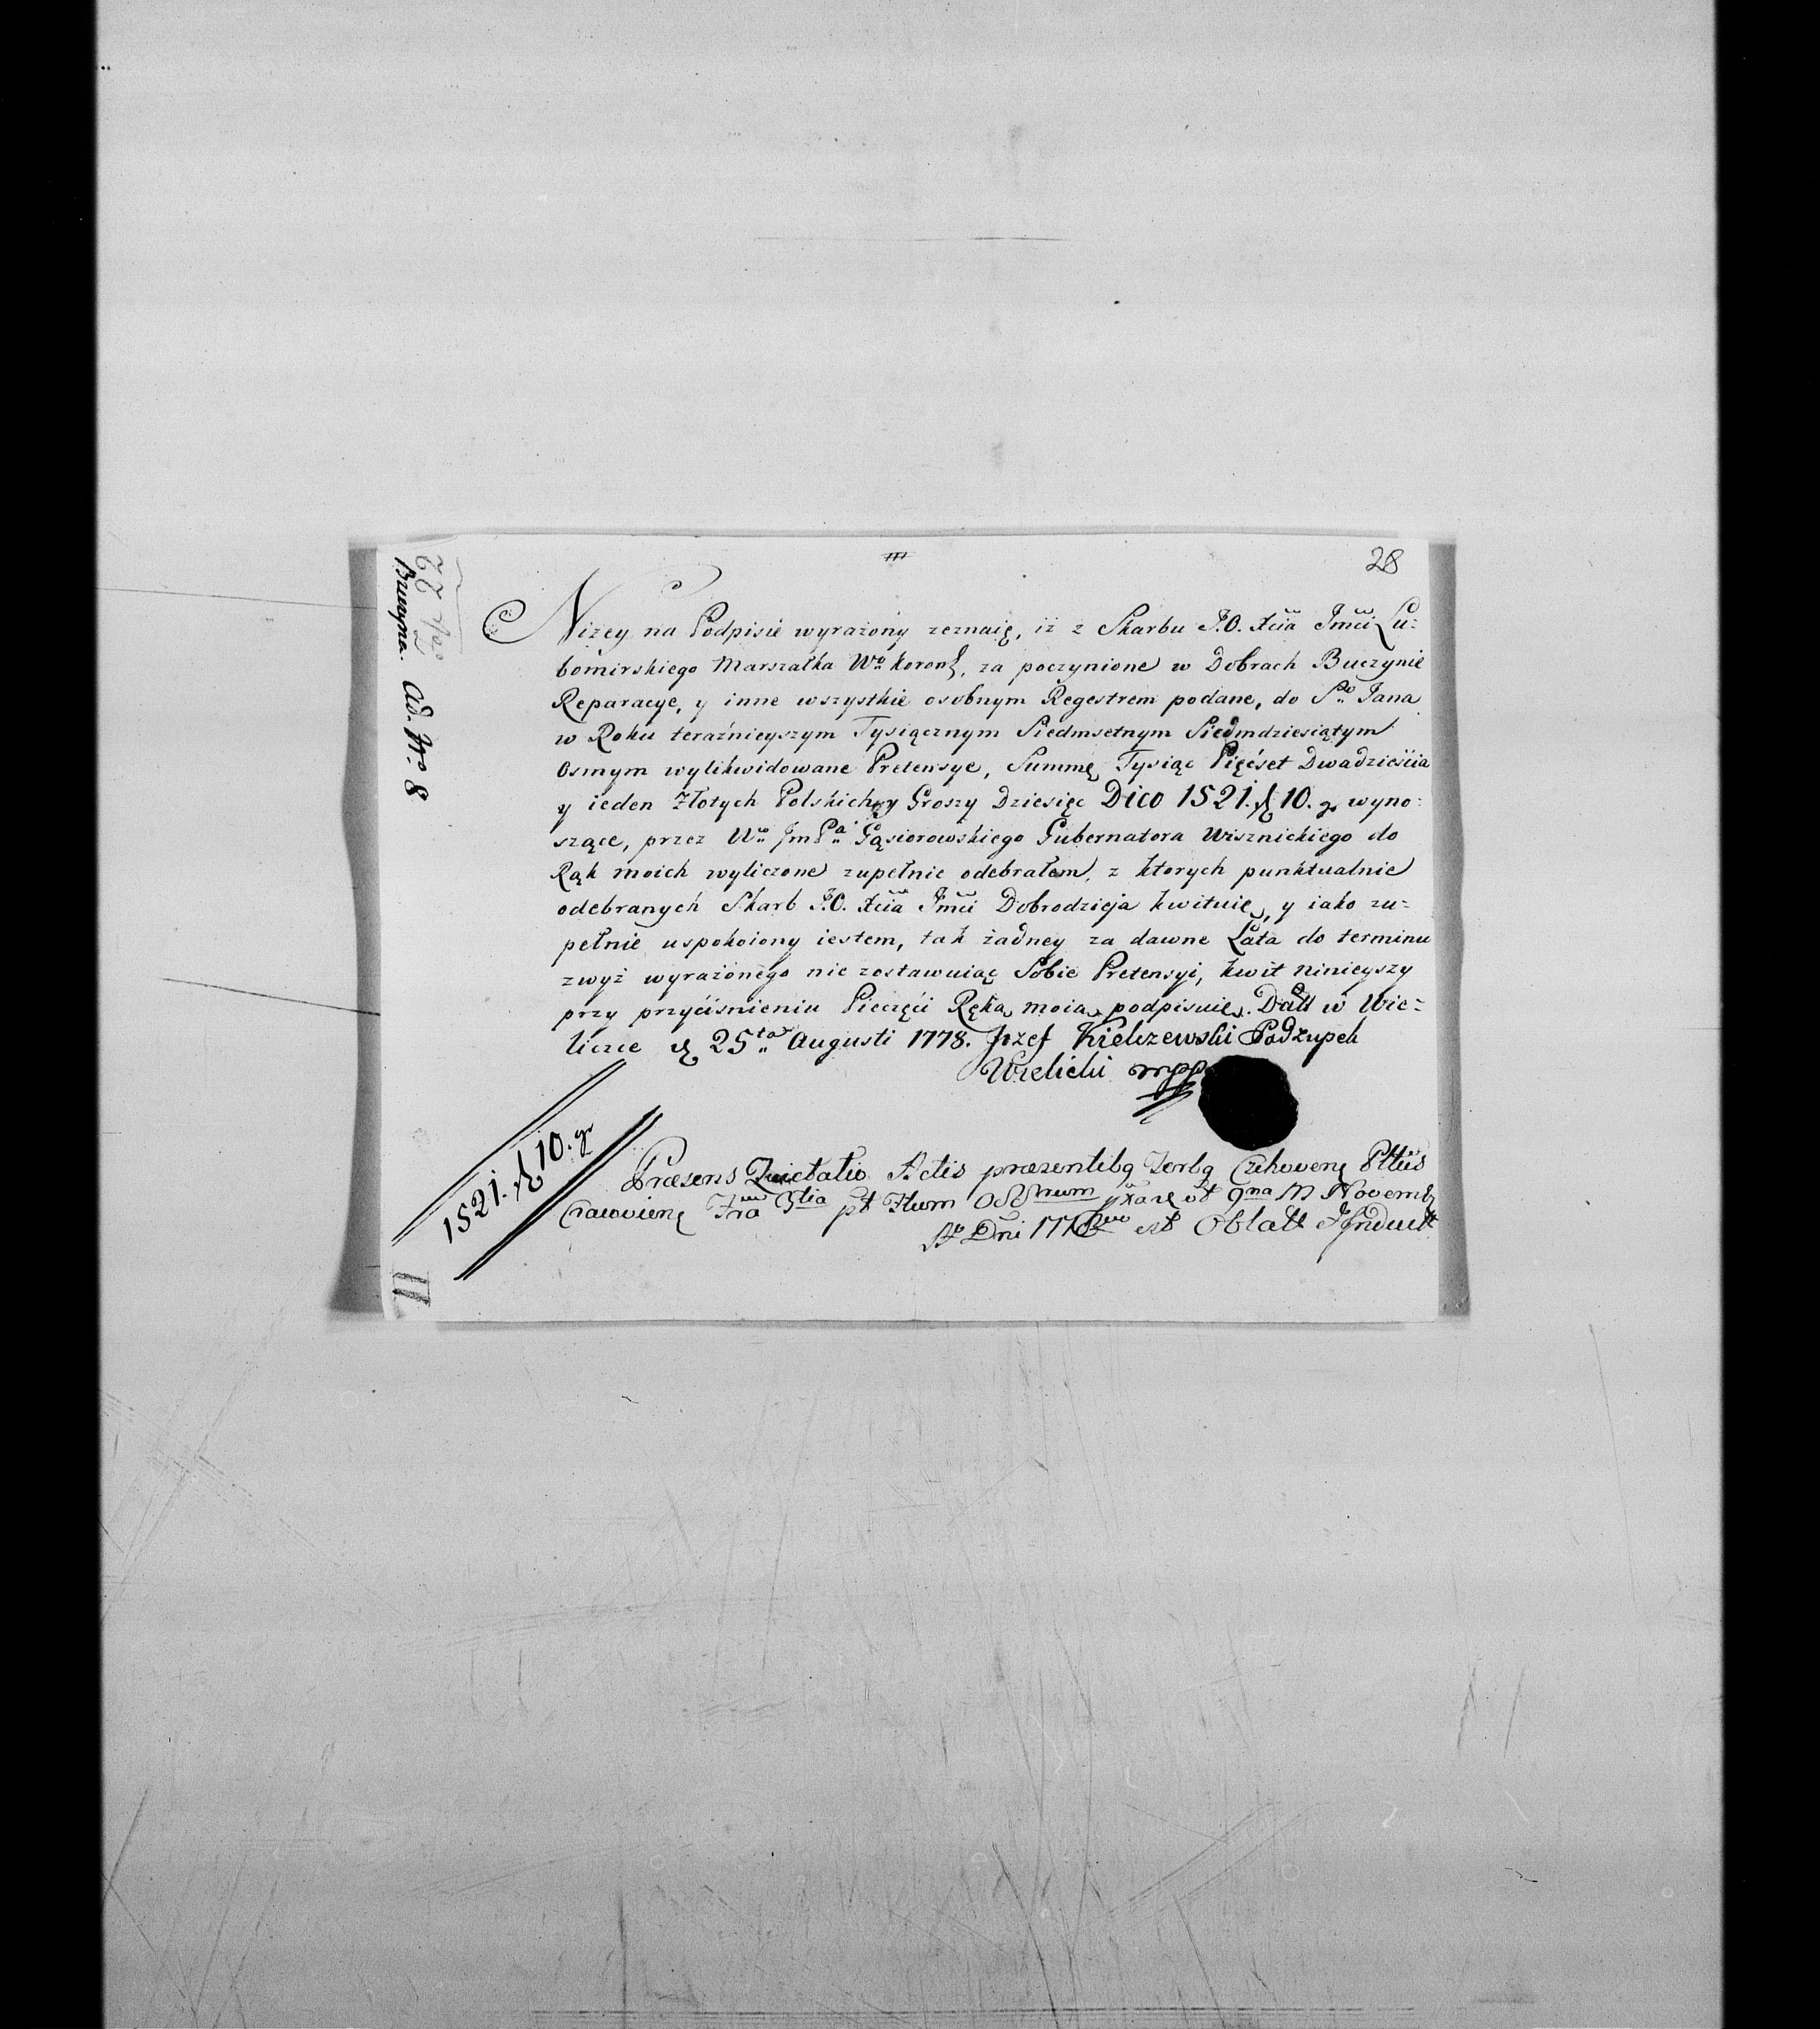 28
Niżey na Podpisie wyrażony zeznaię, iż z Skarbu J.O. Xcia Jmci Lu=
bomirskiego Marszałka Wo Koron, za poczynione w Dobrach Buczynie
Reparacye, y inne wszystkie osobnym Regestrem podane, do So Jana
w Roku teraźnieyszym Tysiącznym Siedmsetnym Siedmdziesiątym
Osmym wylikwidowane Pretensye, Summę Tysiąc Pięćset Dwadzieścia
y ieden Złotych Polskich, y Groszy Dziesięć Dico 1521. zł 10. gr wyno=
szące, przez Wo Jm Pa Gąsiorowskiego Gubernatora Wisznickiego do
Rąk moich wyliczone zupełnie odebrałem, z ktorych punktualnie
odebranych Skarb J.O. Xcia Jmci Dobrodzieja kwituię, y iako zu=
pełnie uspokoiony iestem, tak żadney za dawne Lata do terminu
zwyż wyrażonego nie zostawuiąc Sobie Pretensyi, kwit ninieyszy
przy przyciśnieniu Pieczęci Ręką moią podpisuię. Datt w Wie=
liczce d 25ta Augusti 1778. Jozef Kielczewski Podzupek
Wielicki mpp
1521. zł 10. gr
Præsens Quietatio Actis præsentibq Terbq Czchovens Pttus
Cracoviens Fra 3tia pt Ftum Novemb
Ao Dni 1778 est Oblatt & Induct
Buczyna. Ad. Nro 8
II